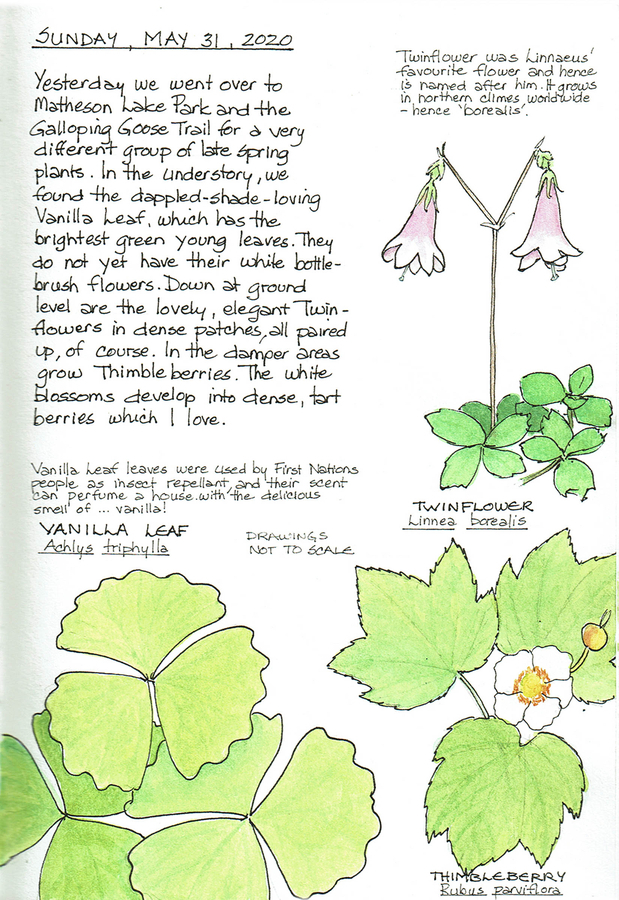 SUNDAY, MAY 31, 2020
Yesterday we went over to
Matheson Lake Park and the
Galloping Goose Trail for a very
different group of late spring
plants. In the understory, we
found the dappled-shade-loving
Vanilla Leaf, which has the
brightest green young leaves. They
do not yet have their white bottle-
brush flowers. Down at ground
level are the lovely, elegant Twin-
flowers in dense patches, all paired
up, of course. In the damper areas
grow Thimbleberries. The white
blossoms develop into dense, tart
berries which I love.
Twinflower was Linnaeus'
favourite flower and hence
is named after him. It grows
in northern climes worldwide
- hence 'borealis'.
TWINFLOWER
Linnea borealis
Vanilla Leaf leaves were used by First Nations
people as insect repellant, and their scent
can perfume a house with the delicious
smell of ... vanilla!
VANILLA LEAF
Achlys triphylla
DRAWINGS
NOT TO SCALE
THIMBLEBERRY
Rubus parviflora